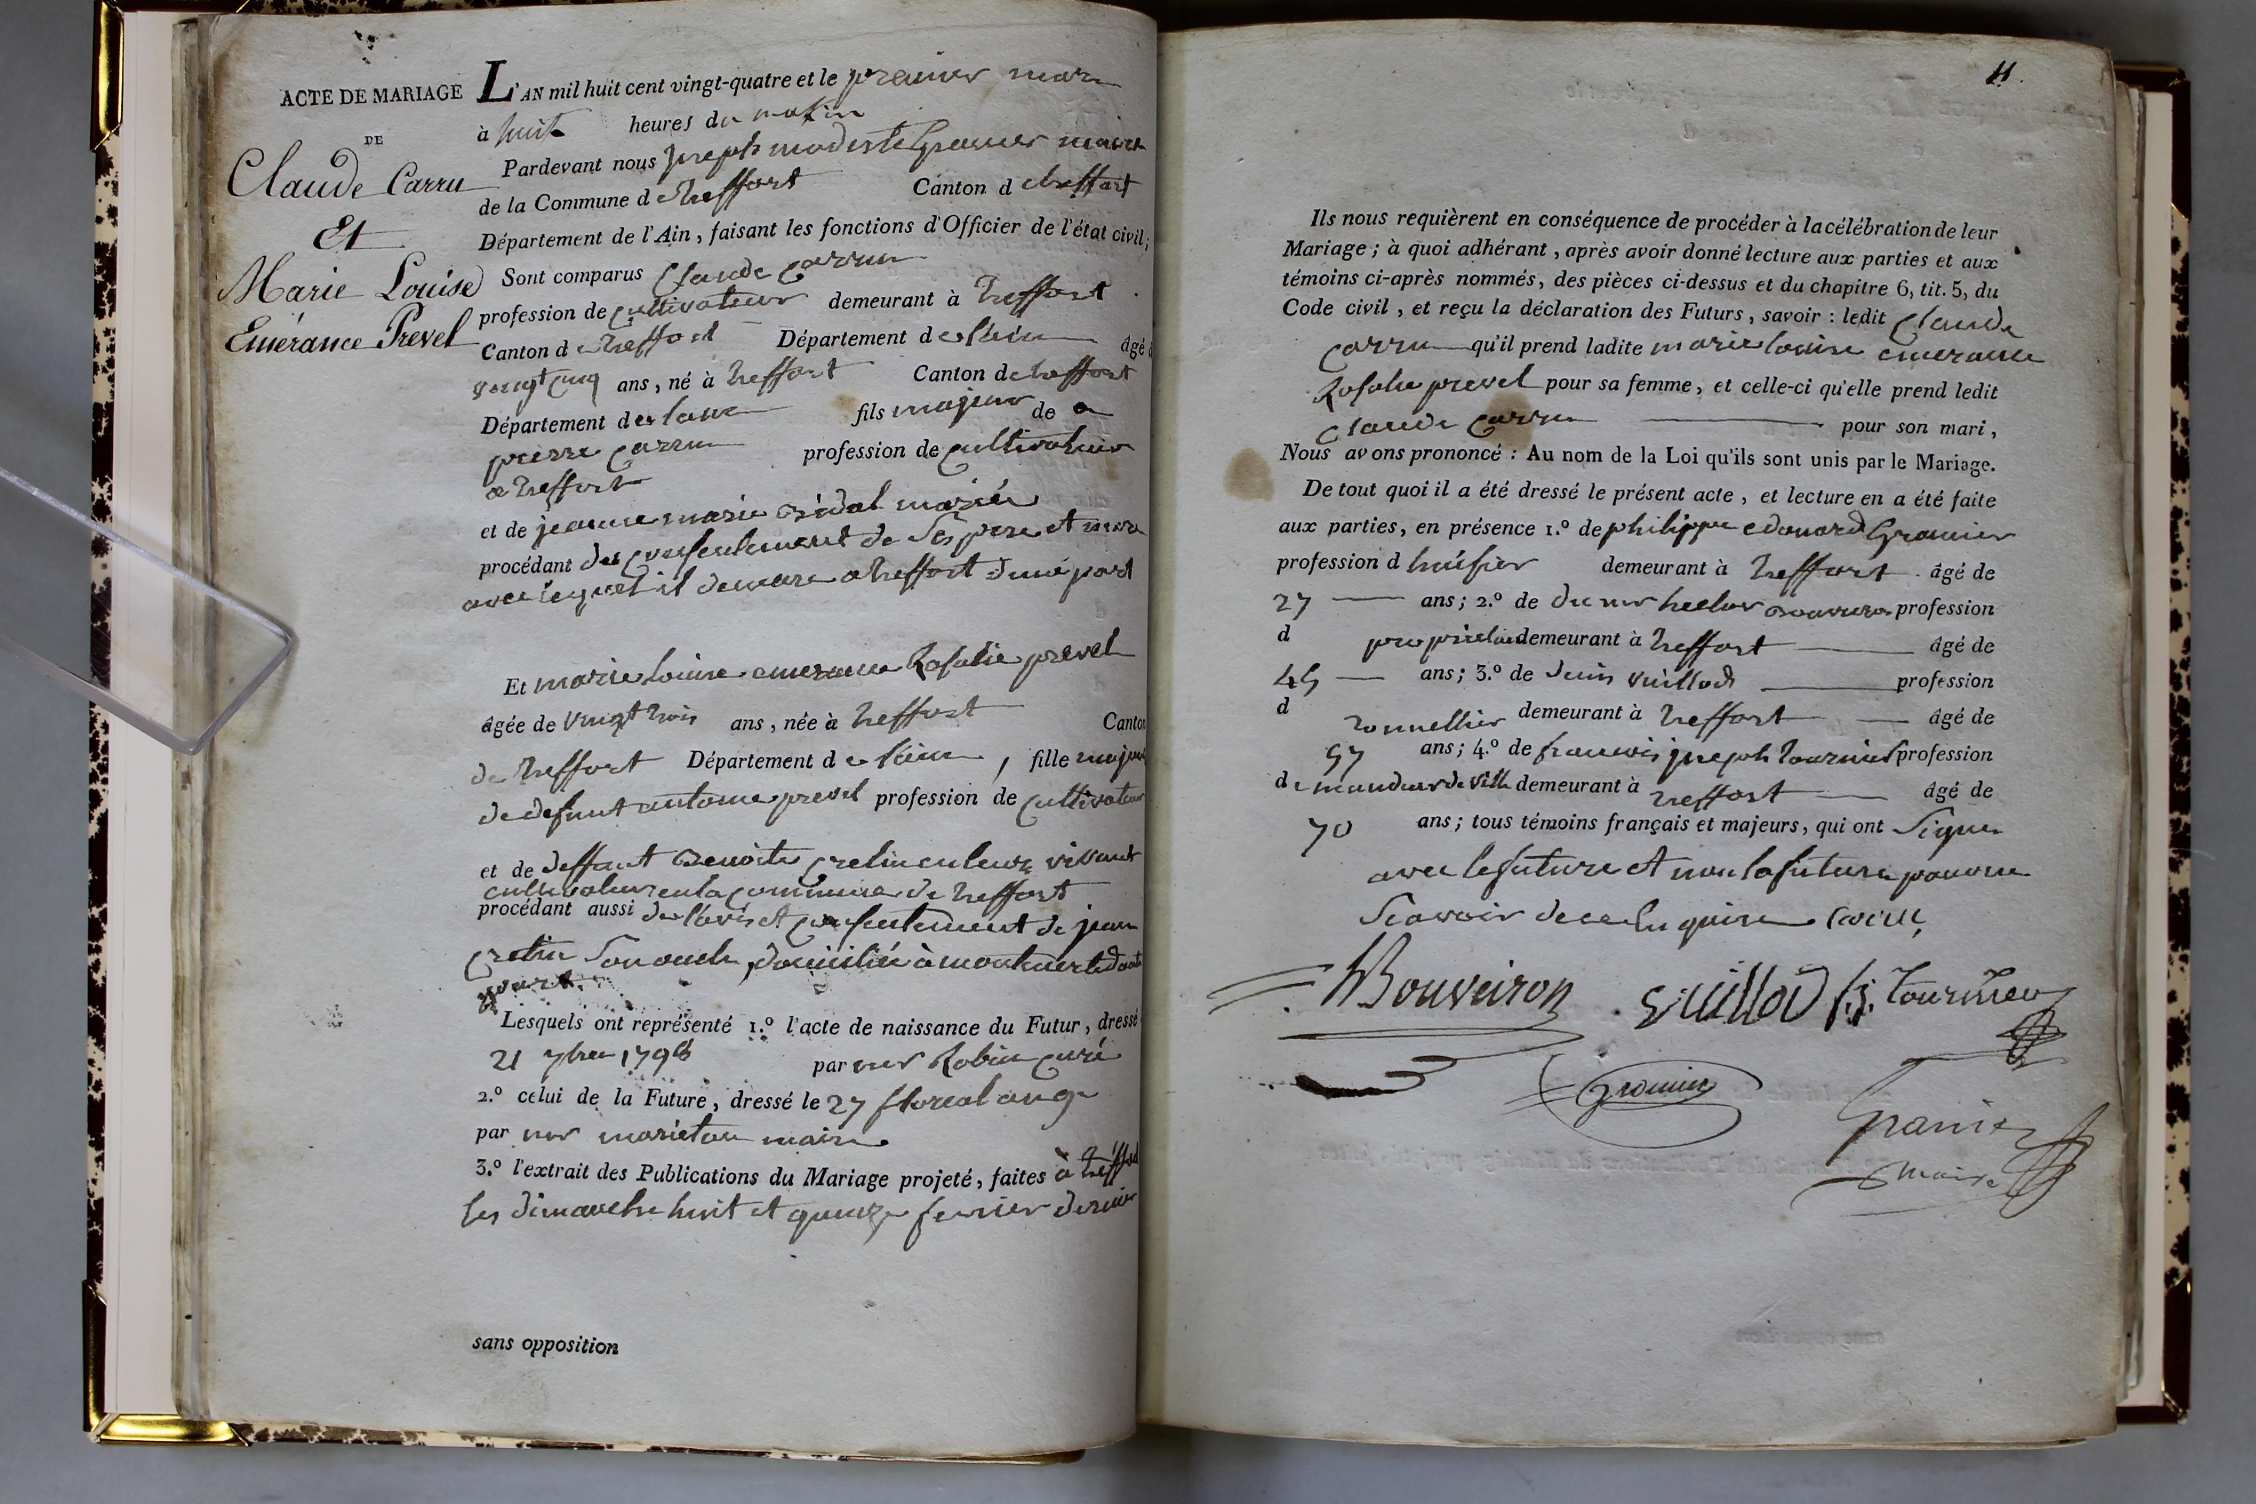 ACTE DE MARIAGE
DE
Claude Carru
Et
Marie Louise
Emérance Prevel
L'AN mil huit cent vingt-quatre et le premier mars
à huit heures du matin
Pardevant nous joseph modeste Granier maire
de la Commune de treffort Canton de treffort
Département de l'Ain, faisant les fonctions d'Officier de l'état civil;
Sont comparus Claude Carru
profession de cultivateur demeurant à treffort
Canton de treffort Département de l'ain âgé d
vingt cinq ans, né à treffort Canton de treffort
Département de l'ain fils majeur de
pierre Carru profession de cultivateur
a treffort
et de jeanne marie mariés
procédant du consentement de ses pere et mere
avec lequel il demeure a treffort d'une part
Et marie louise emerance Rosalie prevel
âgée de vingt trois ans, née à treffort Canton
de treffort Département de l'ain, fille majeure
de defunt antoine prevel profession de cultivateur
et de deffunt Benoite cretin vivant
cultivateur en la commune de treffort
procédant aussi de l'avis et consentement de jean
cretin son oncle, domicilié à d'autre
part.
Lesquels ont représenté 1.º l'acte de naissance du Futur, dressé
21 7bre 1798 par mr Robin curé
2.º celui de la Future, dressé le 27 floreal an 9
par mr marieton maire
3.º l'extrait des Publications du Mariage projeté, faites à treffort
les dimanche huit et quinze fevrier dernier
sans opposition
11.
Ils nous requièrent en conséquence de procéder à la célébration de leur
Mariage; à quoi adhérant, après avoir donné lecture aux parties et aux
témoins ci-après nommés, des pièces ci-dessus et du chapitre 6, tit. 5, du
Code civil, et reçu la déclaration des Futurs, savoir: ledit Claude
Carru qu'il prend ladite marie louise emerance
Rosalie prevel pour sa femme, et celle-ci qu'elle prend ledit
Claude Carru pour son mari,
Nous avons prononcé: Au nom de la Loi qu'ils sont unis par le Mariage.
De tout quoi il a été dressé le présent acte, et lecture en a été faite
aux parties, en présence 1.º de philippe edouard Granier
profession d huissier demeurant à treffort âgé de
27 ans; 2.º de hector Bouveiron profession
d propriétaire demeurant à treffort âgé de
45 ans; 3.º de denis vuillod profession
d tonnellier demeurant à treffort âgé de
57 ans; 4.º de francois joseph tournier profession
de mandeur de ville demeurant à treffort âgé de
70 ans; tous témoins français et majeurs, qui ont signer
avec le future et non la future pour ne
scavoir de ce enquise
Bouveiron vuillod f. j. tournier
Granier
Granier
maire